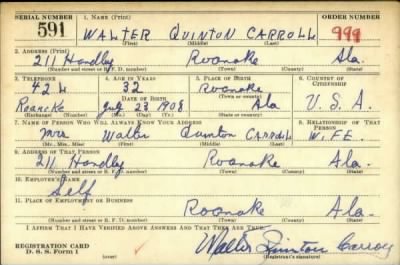 SERIAL NUMBER 1. NAME (Print) ORDER NUMBER
591 WALTER QUINTON CARROLL 999
(First) (Middle) (Last)
2. ADDRESS (Print)
211 Handley Roanoke Ala.
(Number and street or R. F. D. number) (Town) (County) (State)
3. TELEPHONE 4. AGE IN YEARS 5. PLACE OF BIRTH 6. COUNTRY OF CITIZENSHIP
42 L 32 Roanoke
DATE OF BIRTH (Town or county)
Roanoke July 23 1908 Ala U. S. A.
(Exchange) (Number) (Mo.) (Day) (Yr.) (State or country)
7. NAME OF PERSON WHO WILL ALWAYS KNOW YOUR ADDRESS 8. RELATIONSHIP OF THAT PERSON
Mrs Walter Quinton Carroll WIFE
(Mr., Mrs., Miss) (First) (Middle) (Last)
9. ADDRESS OF THAT PERSON
211 Handley Roanoke Ala.
(Number and street or R. F. D. number) (Town) (County) (State)
10. EMPLOYER'S NAME
Self
11. PLACE OF EMPLOYMENT OR BUSINESS
Roanoke Ala.
(Number and street or R. F. D. number) (Town) (County) (State)
I AFFIRM THAT I HAVE VERIFIED ABOVE ANSWERS AND THAT THEY ARE TRUE.
REGISTRATION CARD
D. S. S. Form 1 (over) Walter Quinton Carroll
(Registrant's signature)